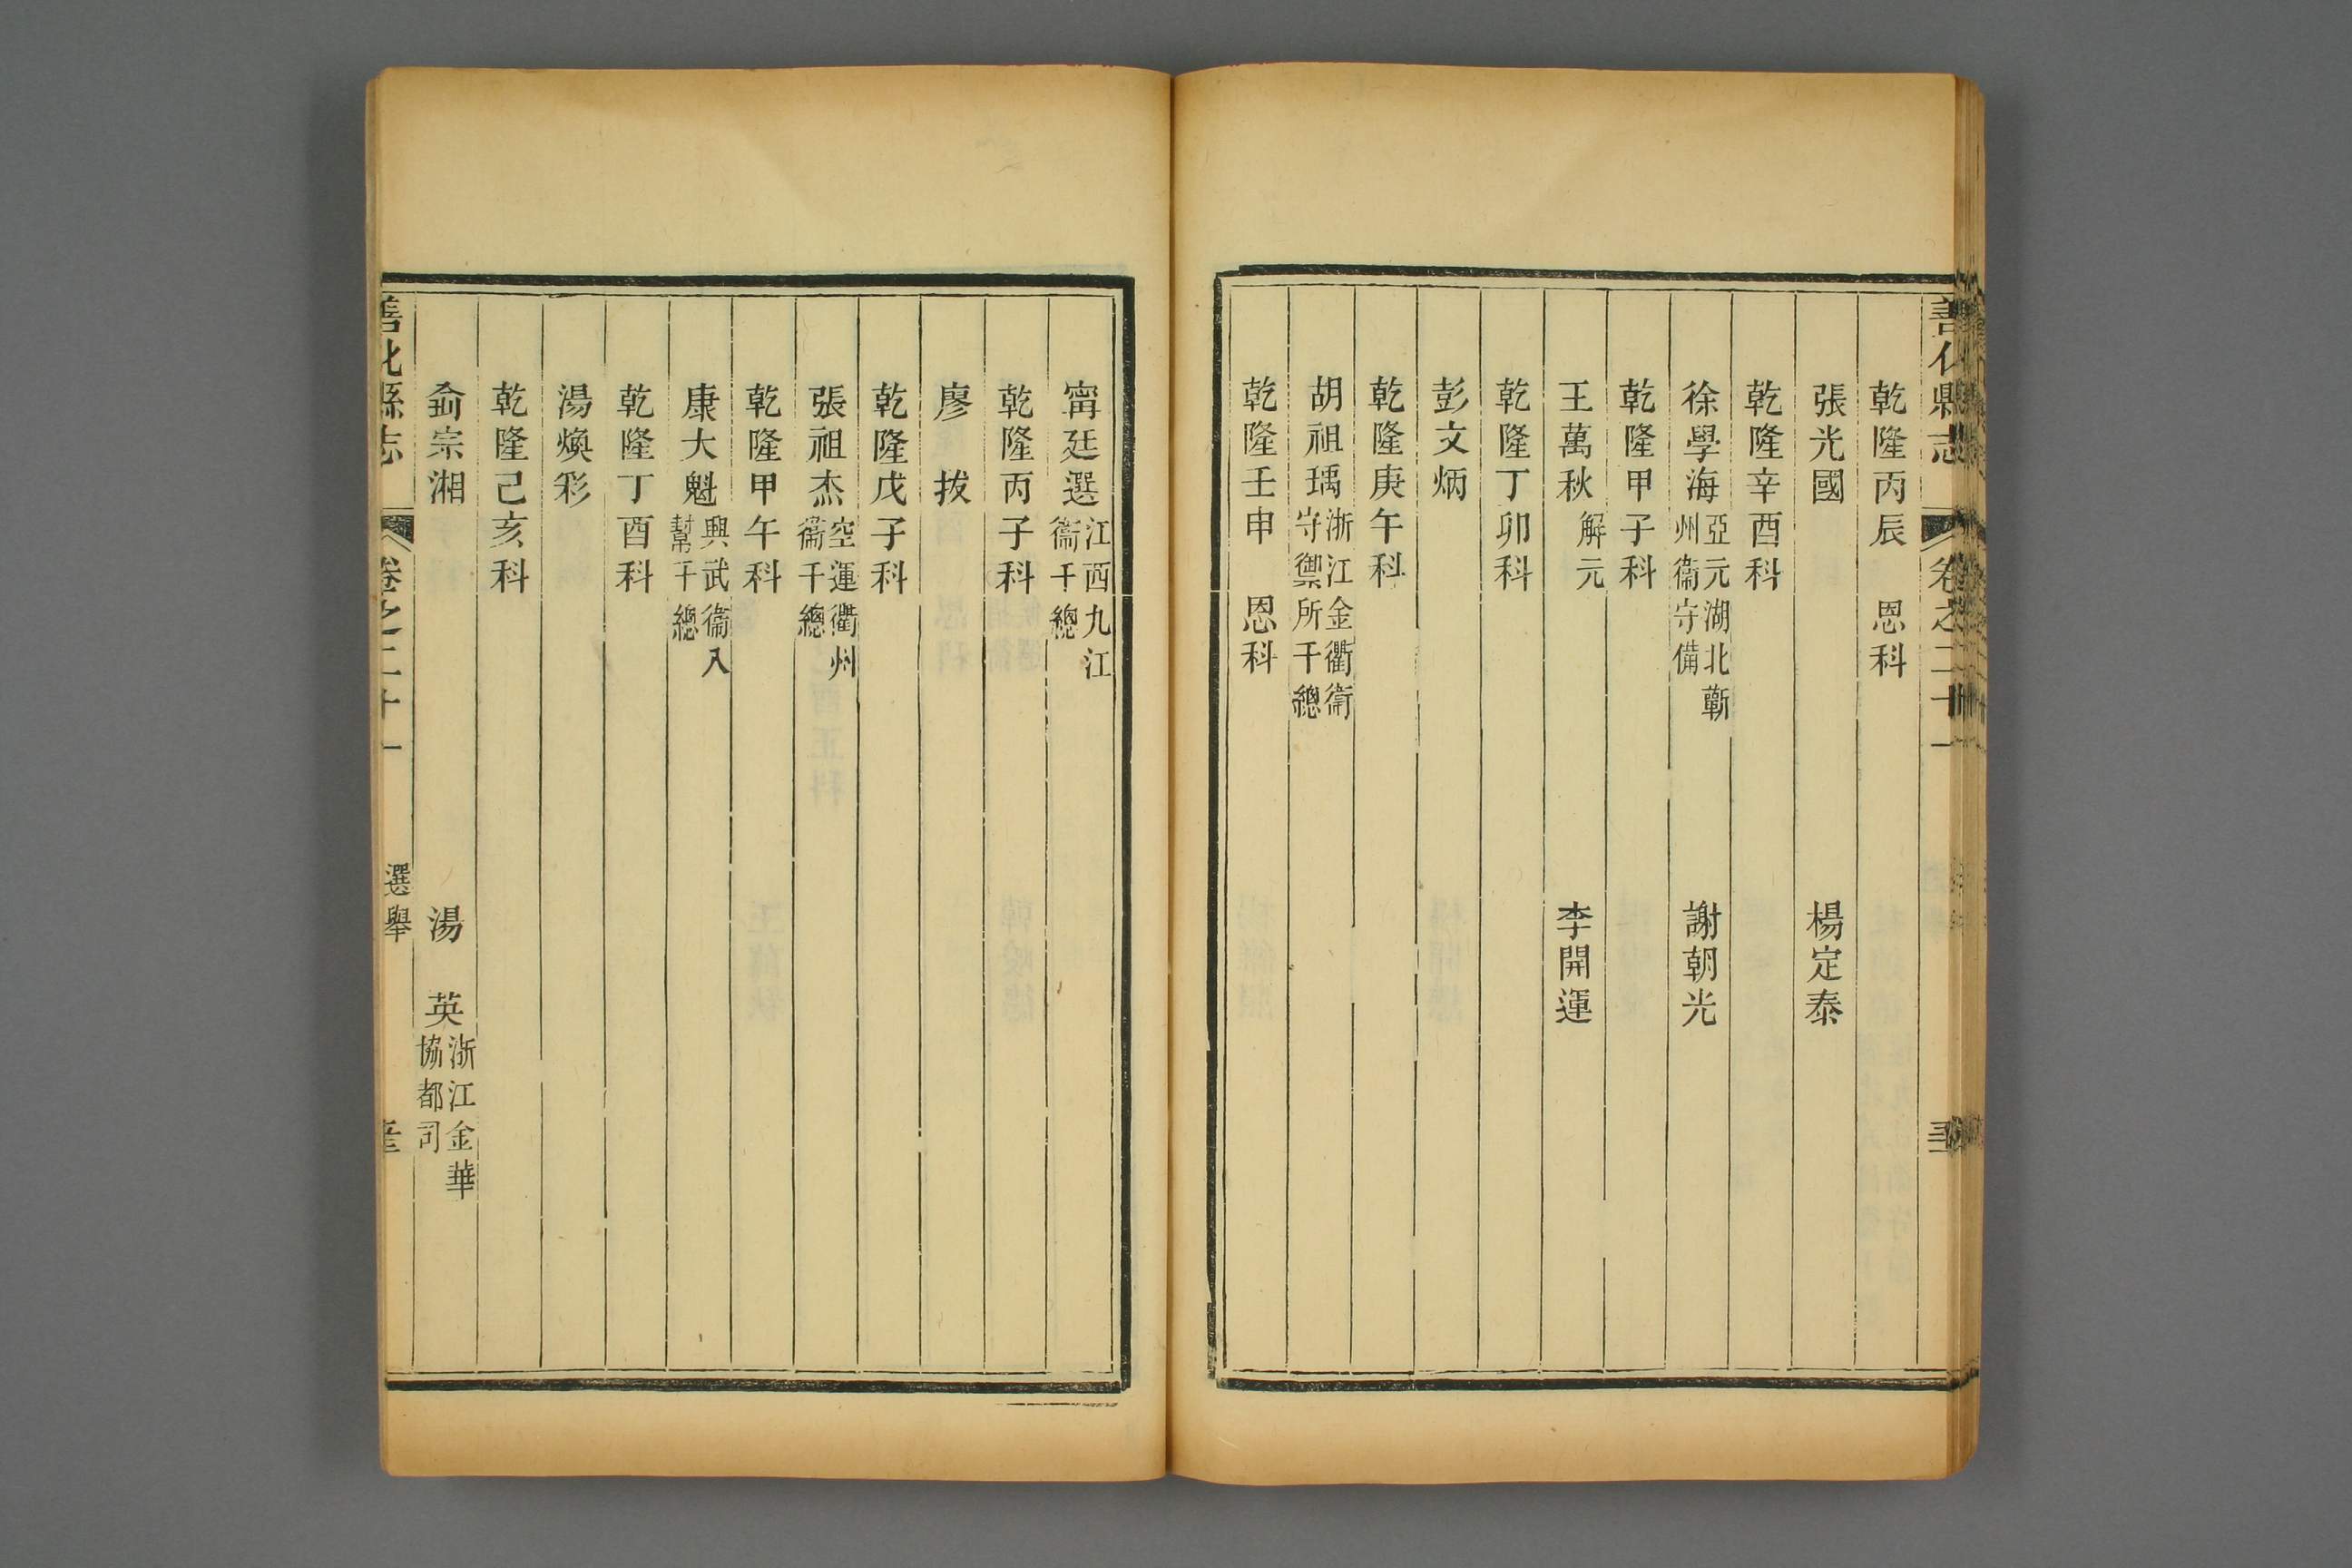 善化縣志 卷之二十一
乾隆丙辰 恩科
張光國 楊定泰
乾隆辛酉科
徐學海 亞元湖北蘄 州衞守備 謝朝光
乾隆甲子科
王萬秋 解元 李開運
乾隆丁卯科
彭文炳
乾隆庚午科
胡祖瑀 浙江金衢衞 守禦所千總
乾隆壬申 恩科
甯廷選 江西九江 衞千總
乾隆丙子科
廖 拔
乾隆戊子科
張祖杰 空運衢州 衞千總
乾隆甲午科
康大魁 興武衞入 幫千總
乾隆丁酉科
湯煥彩
乾隆己亥科
俞宗湘 湯 英 浙江金華 協都司
善化縣志 卷之二十一 選舉